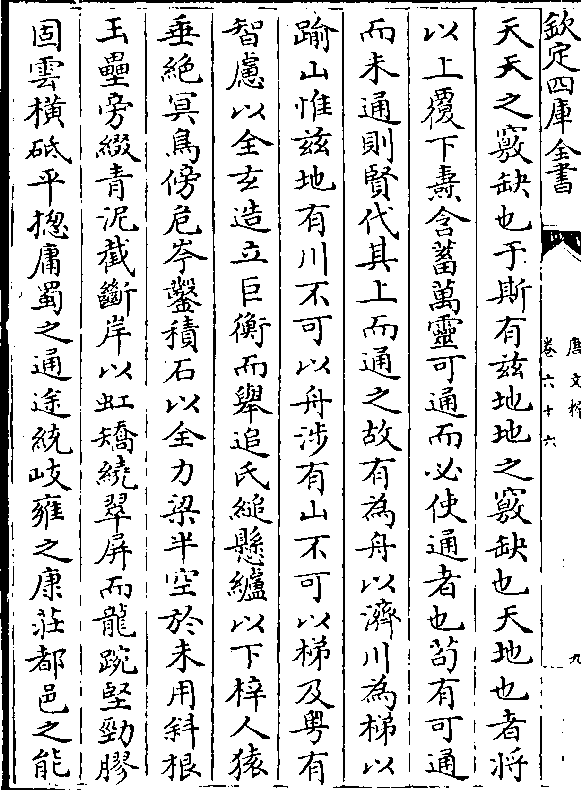 欽定四庫全書
唐文粹
卷六十六
九
天天之竅缺也于斯有兹地地之竅缺也天地也者將
以上覆下燾含蓄萬靈可通而必使通者也茍有可通
而未通則賢代其上而通之故有為舟以濟川為梯以
踰山惟兹地有川不可以舟涉有山不可以梯及粤有
智慮以全玄造立巨衡而舉追氏縋懸纑以下梓人猿
垂絶冥鳥傍危岑鑿積石以全力梁半空於未用斜根
玉壘旁綴青泥截斷岸以虹矯繞翠屏而龍踠堅勁膠
固雲橫砥平揔庸蜀之通途統岐雍之康莊都邑之能